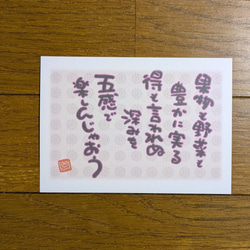 果物と野菜と
豊かに実る
得も言われぬ
深みを
五感で
楽しんじゃおう